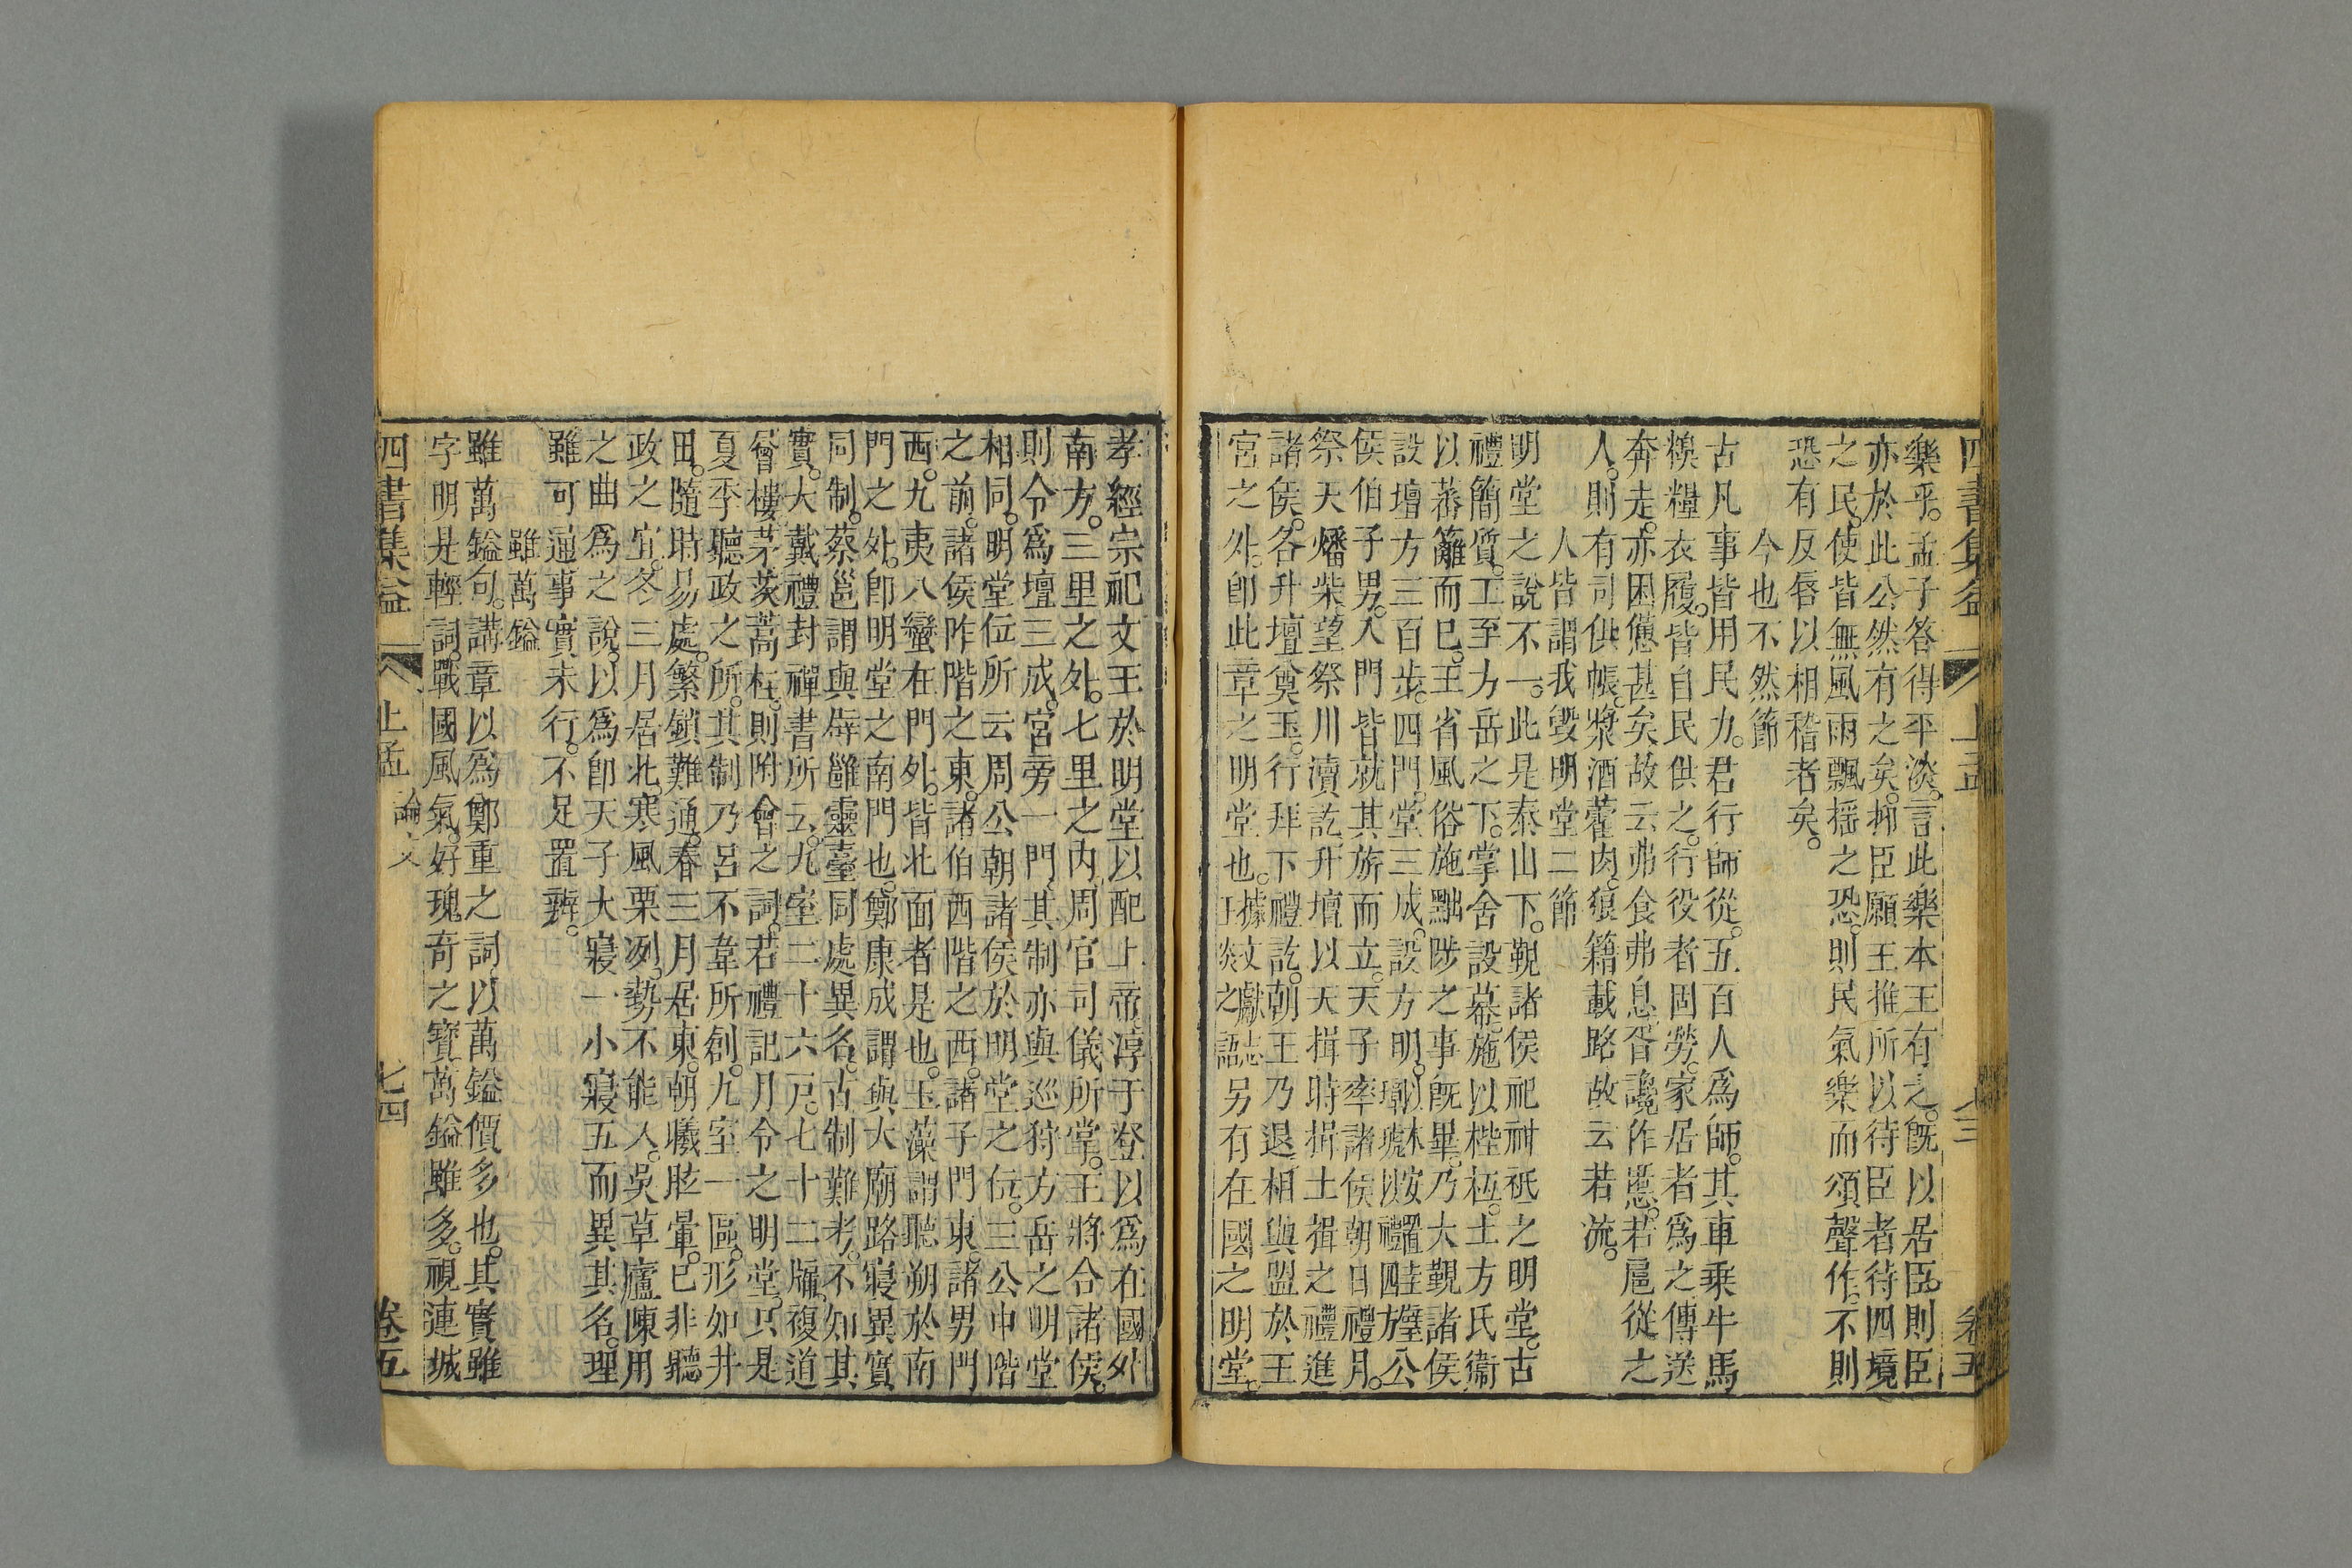 四書集益　上孟　七三　卷五
樂乎。孟子答得平淡。言此樂本王有之。旣以居臣。則臣
亦於此公然有之矣。抑臣願王推所以待臣者待四境
之民。使皆無風雨飄搖之恐。則民氣樂而頌聲作。不則
恐有反唇以相稽者矣。
今也不然節
古凡事皆用民力。君行師從。五百人爲師。其車乗牛馬
糗糧衣履。皆自民供之。行役者固勞。家居者爲之傳送
奔走。亦困憊甚矣故云弗食弗息。胥讒作慝。若扈從之
人。則有司供帳。漿酒藿肉。狼籍載路故云若流。
人皆謂我毀明堂二節
明堂之說不一。此是泰山下。覲諸侯祀祌祇之明堂。古
禮簡質。工至方岳之下。掌舍設幕。施以梐枑。土方氏衞
以蕃籬而已。王省風俗施黜陟之事旣畢。乃大覲諸侯
設壇方三百步。四門。堂三成。設方明。以木按置圭璧公
侯伯子男。入門皆就其旂而立。天子率諸侯朝日禮月。
祭天燔柴。望祭川瀆訖。升壇以天揖時揖土揖之禮進
諸侯。各升壇奠玉。行拜下禮訖。朝王乃退。相與盟於王
宮之外。卽此章之明堂也。據文獻志另有在國之明堂。
孝經宗祀文王於明堂以配上帝。淳于登以爲在國外
南方。三里之外。七里之内。周官司儀所掌。王將合諸侯。
則令爲壇三成。宮旁一門。其制亦與巡狩方岳之明堂
相同。明堂位所云周公朝諸侯於明堂之位。三公中階
之前。諸侯阼階之東。諸伯西階之西。諸子門東。諸男門
西。九夷八蠻在門外。皆北面者是也。玉藻謂聽朔於南
門之外。卽明堂之南門也。鄭康成謂與大廟路寢異實
同制。蔡邕謂與辟雝靈臺同處異名。古制難考。不知其
實。大戴禮封禪書所云。九室二十六戸。七十二牖。複道
曾樓。茅茨蒿柱。則附會之詞。若禮記月令之明堂。只是
夏季聽政之所。其制乃呂不韋所創。九室一區。形如井
田。隨時易處。繁鎖難通。春三月居東。朝曦眩暈。已非聽
政之宜。冬三月居北。寒風栗冽。勢不能入。吳草廬陳用
之曲爲之說。以爲卽天子大寢一小寢五而異其名。理
雖可通。事實未行。不足置辨。
雖萬鎰
雖萬鎰句。講章以爲鄭重之詞以萬鎰價多也。其實雖
字明是輕詞。戰國風氣。好瑰奇之寶萬鎰雖多。視連城
四書集益　上孟　論文　七四　卷五